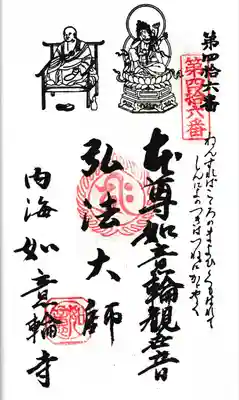 第四拾六番
第四拾六番
ねんずればこころのまよひくもはれて
しんによのつきはつねにかがやく
本尊如意輪觀世音
弘法大師
内海 如意輪寺